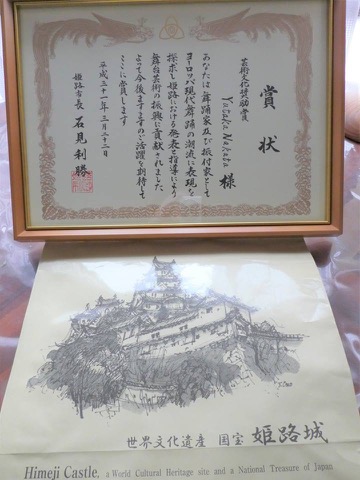 賞状
芸術文化奨励賞
Yasuka Nakaba 様
あなたは舞踊家及び振付家として
ヨーロッパ現代舞踊の潮流に表現を
探求し姫路における発表と指導により
舞台芸術の振興に貢献されました
よって今後ますますのご活躍を期待して
ここに賞します
平成三十一年三月二十二日
姫路市長 石見利勝
世界文化遺産 国宝 姫路城
Himeji Castle, a World Cultural Heritage site and a National Treasure of Japan